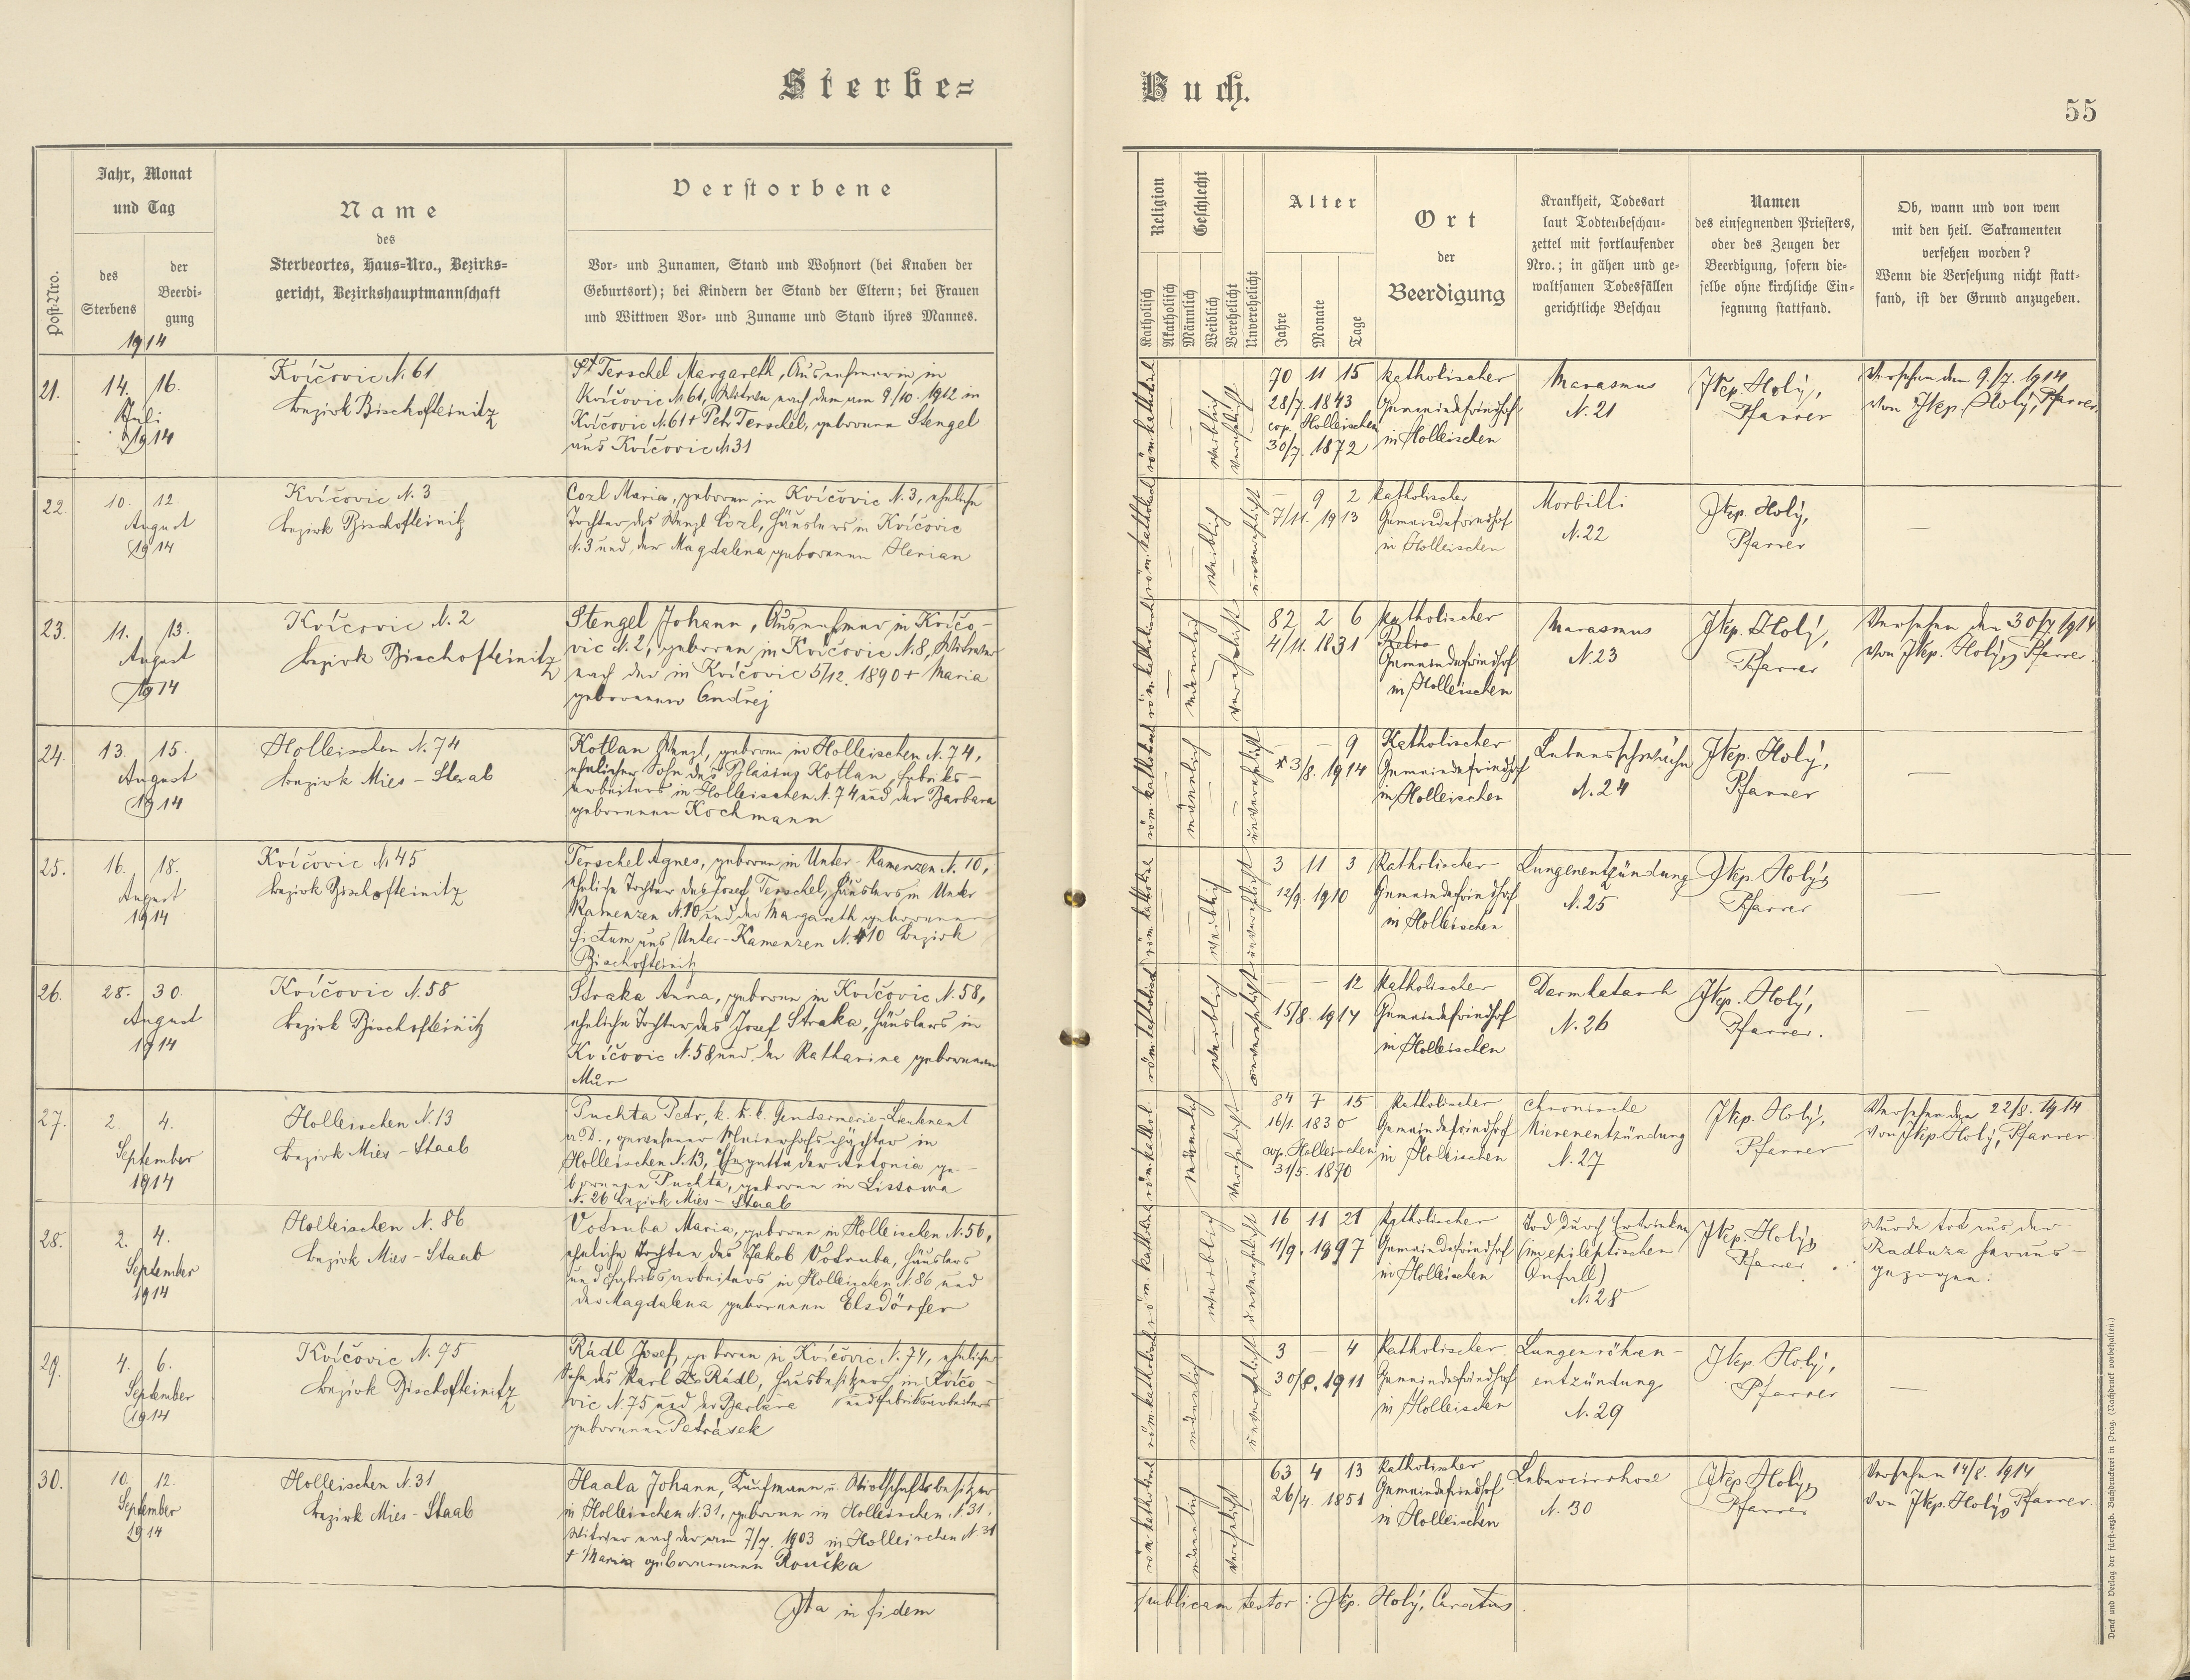 Sterbe=
Buch.
55
Post-Nro.
Jahr, Monat
und Tag
des
Sterbens
der
Beerdi-
gung
1914
Name
des
Sterbeortes, Haus=Nro., Bezirks=
gericht, Bezirkshauptmannschaft
Verstorbene
Vor- und Zunamen, Stand und Wohnort (bei Knaben der
Geburtsort); bei Kindern der Stand der Eltern; bei Frauen
und Wittwen Vor- und Zuname und Stand ihres Mannes.
Religion
Katholisch
Akatholisch
Geschlecht
Männlich
Weiblich
Verehelicht
Unverehelicht
Alter
Jahre
Monate
Tage
Ort
der
Beerdigung
Krankheit, Todesart
laut Todtenbeschau-
zettel mit fortlaufender
Nro.; in gähen und ge-
waltsamen Todesfällen
gerichtliche Beschau
Namen
des einsegnenden Priesters,
oder des Zeugen der
Beerdigung, sofern die-
selbe ohne kirchliche Ein-
segnung stattfand.
Ob, wann und von wem
mit den heil. Sakramenten
versehen worden?
Wenn die Versehung nicht statt-
fand, ist der Grund anzugeben.
21. 14. 16.
Juli
1914
Kvíčovic N. 61
bezirk Bischofteinitz
Terschel Margareth, Ausnehmerin in
Kvíčovic N 61, Witwe nach dem am 9/10. 1912 in
Kvíčovic N. 61 + Petr Terschel, geborene Stengel
aus Kvíčovic N 31
röm. kathol. weiblich verehelicht
70 11 15
28/7. 1843
cop. Holleischen
30/7. 1872
katholischer
Gemeindefriedhof
in Holleischen
Marasmus
N. 21
JNep. Holý,
Pfarrer
Versehen den 9./7. 1914
von JNep. Holý, Pfarrer
22. 10. 12.
August
1914
Kvíčovic N. 3
bezirk Bischofteinitz
Cozl Maria, geboren in Kvíčovic N. 3, eheliche
Tochter des Wenzl Cozl, Häuslers in Kvíčovic
N. 3 und der Magdalena geborenen Herian
weiblich unverehelicht
— 9 2
7/11. 1913
katholischer
Gemeindefriedhof
in Holleischen
Morbilli
N. 22
JNep. Holý,
Pfarrer
—
23. 11. 13.
August
1914
Kvícovic N. 2
bezirk Bischofteinitz
Stengel Johann, Ausnehmer in Kvíčo-
vic N. 2, geboren in Kvíčovic N. 8, Witwer
nach der in Kvíčovic 5/12. 1890 + Maria
geborenen Ondrej
männlich verehelicht
82 2 6
4/11. 1831
katholischer
Gemeindefriedhof
in Holleischen
Marasmus
N. 23
JNep. Holý,
Pfarrer
Versehen den 30/7. 1914
von JNep. Holý, Pfarrer.
24. 13. 15.
August
1914
Holleischen N. 74
bezirk Mies - Staab
Kotlan Wenzl, geboren in Holleischen N. 74,
ehelicher Sohn des Blasius Kotlan, Fabriks-
arbeiters in Holleischen N. 74 und der Barbara
geborenen Kochmann
männlich unverehelicht
— — 9
* 3/8. 1914
Katholischer
Gemeindefriedhof
in Holleischen
Lebensschwäche
N. 24
JNep. Holý,
Pfarrer
—
25. 16. 18.
August
1914
Kvíčovic N 45
bezirk Bischofteinitz
Terschel Agnes, geboren in Unter-Kamenzen N. 10,
eheliche Tochter des Josef Terschel, Häuslers in Unter
Kamenzen N. 10 und der Margareth geborenen
Fictum aus Unter-Kamenzen N. 10 bezirk
Bischofteinitz
weiblich unverehelicht
3 11 3
12/9. 1910
Katholischer
Gemeindefriedhof
in Holleischen
Lungenentzündung
N. 25
JNep. Holý,
Pfarrer
—
26. 28. 30.
August
1914
Kvíčovic N. 58
bezirk Bischofteinitz
Straka Anna, geboren in Kvíčovic N. 58,
eheliche Tochter des Josef Straka, Häuslers in
Kvíčovic N. 58 und der Katharina geborenen
Mur
weiblich unverehelicht
— — 12
15/8. 1914
Katholischer
Gemeindefriedhof
in Holleischen
Darmkatarrh
N. 26
JNep. Holý,
Pfarrer.
—
27. 2. 4.
September
1914
Holleischen N. 13
bezirk Mies - Staab
Puchta Petr, k. k. Gendarmerie-Lieutenant
a. D., gewesener Meierhofspächter in
Holleischen N. 13, Ehegatte der Antonia ge-
borenen Puchta, geboren in Lissowa
N. 26 bezirk Mies - Staab
männlich verehelicht
84 7 15
16/1. 1830
cop. Holleischen
31/5. 1870
Katholischer
Gemeindefriedhof
in Holleischen
Chronische
Nierenentzündung
N. 27
JNep. Holý,
Pfarrer
Versehen den 22/8. 1914
von JNep Holý, Pfarrer
28. 2. 4.
September
1914
Holleischen N. 86
bezirk Mies - Staab
Votruba Maria, geboren in Holleischen N. 56,
eheliche Tochter des Jakob Votruba, Häuslers
und Fabriksarbeiters in Holleischen N. 86 und
der Magdalena geborenen Elsdörfer
weiblich unverehelicht
16 11 21
11/9. 1897
Katholischer
Gemeindefriedhof
in Holleischen
Tod durch Ertrinken
(im epileptischen
Anfall)
N 28
JNep. Holý,
Pfarrer
Wurde tot aus der
Radbuza heraus-
gezogen.
29. 4. 6.
September
1914
Kvíčovic N. 75
bezirk Bischofteinitz
Rádl Josef, geboren in Kvíčovic N. 74, ehelicher
Sohn des Karl Rádl, Hausbesitzers in Kvíčo-
vic N. 75 und der Barbara und Fabriksarbeiters
geborenen Petrásek
männlich unverehelicht
3 — 4
30/8. 1911
Katholischer
Gemeindefriedhof
in Holleischen
Lungenröhren-
entzündung
N. 29
JNep. Holý,
Pfarrer
—
30. 10. 12.
September
1914
Holleischen N. 31
bezirk Mies - Staab
Haala Johann, Kaufmann u. Wirthschaftsbesitzer
in Holleischen N. 31, geboren in Holleischen N. 31,
Witwer nach der am 7/7. 1903 in Holleischen N 31
+ Maria geborenen Roučka
männlich verehelicht
63 4 13
26/4. 1851
Katholischer
Gemeindefriedhof
in Holleischen
Lebercirrhose
N. 30
JNep. Holý,
Pfarrer
Versehen 14/8. 1914
von JNep. Holý, Pfarrer.
Ita in fidem
publicam testor: JNep. Holý, Curatus.
Druck und Verlag der fürst-erzb. Buchdruckerei in Prag. (Nachdruck vorbehalten.)